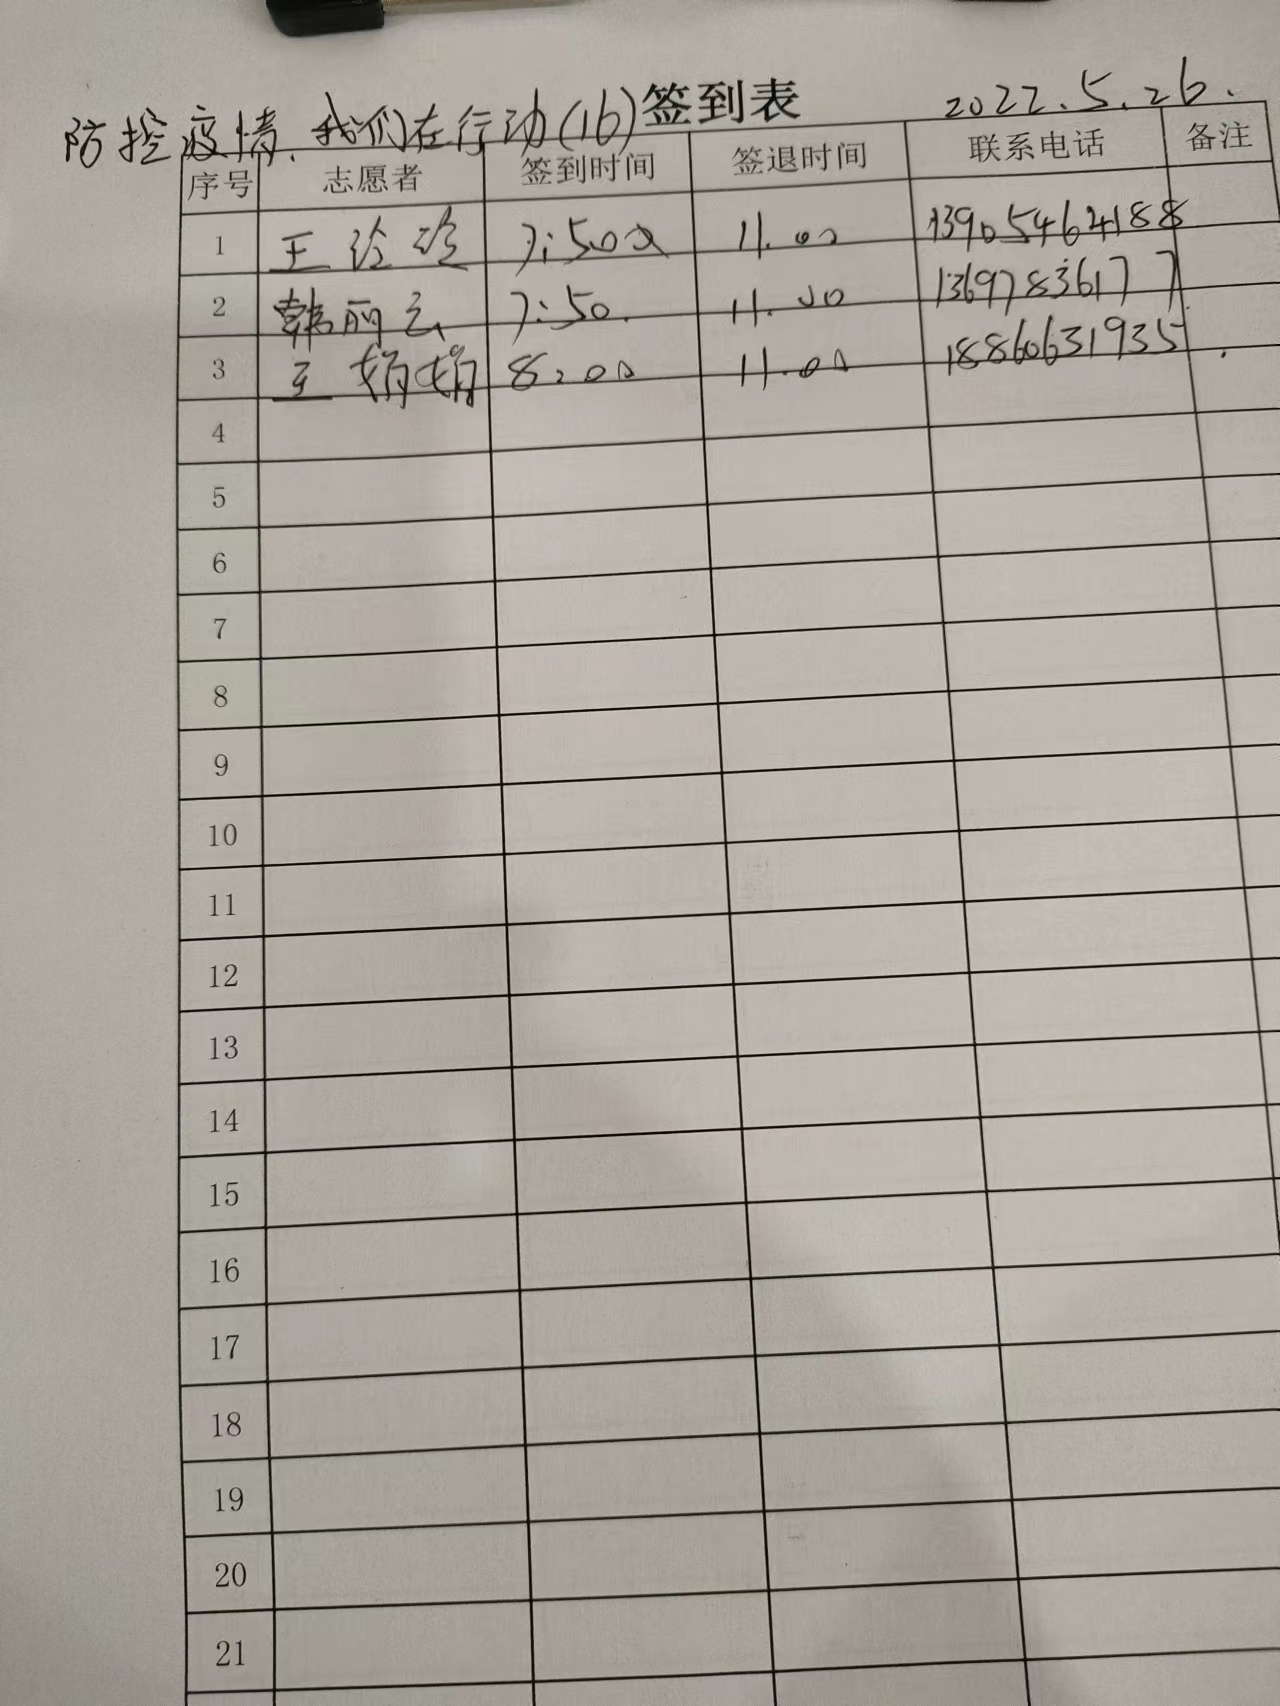 防控疫情.我们在行动(16)签到表 2022.5.26.
序号 志愿者 签到时间 签退时间 联系电话 备注
1 王 7:50 11.00 13905464188
2 韩丽云 7:50. 11.00 13697836177
3 王娟娟 8:00 11.00 18860631935
4
5
6
7
8
9
10
11
12
13
14
15
16
17
18
19
20
21